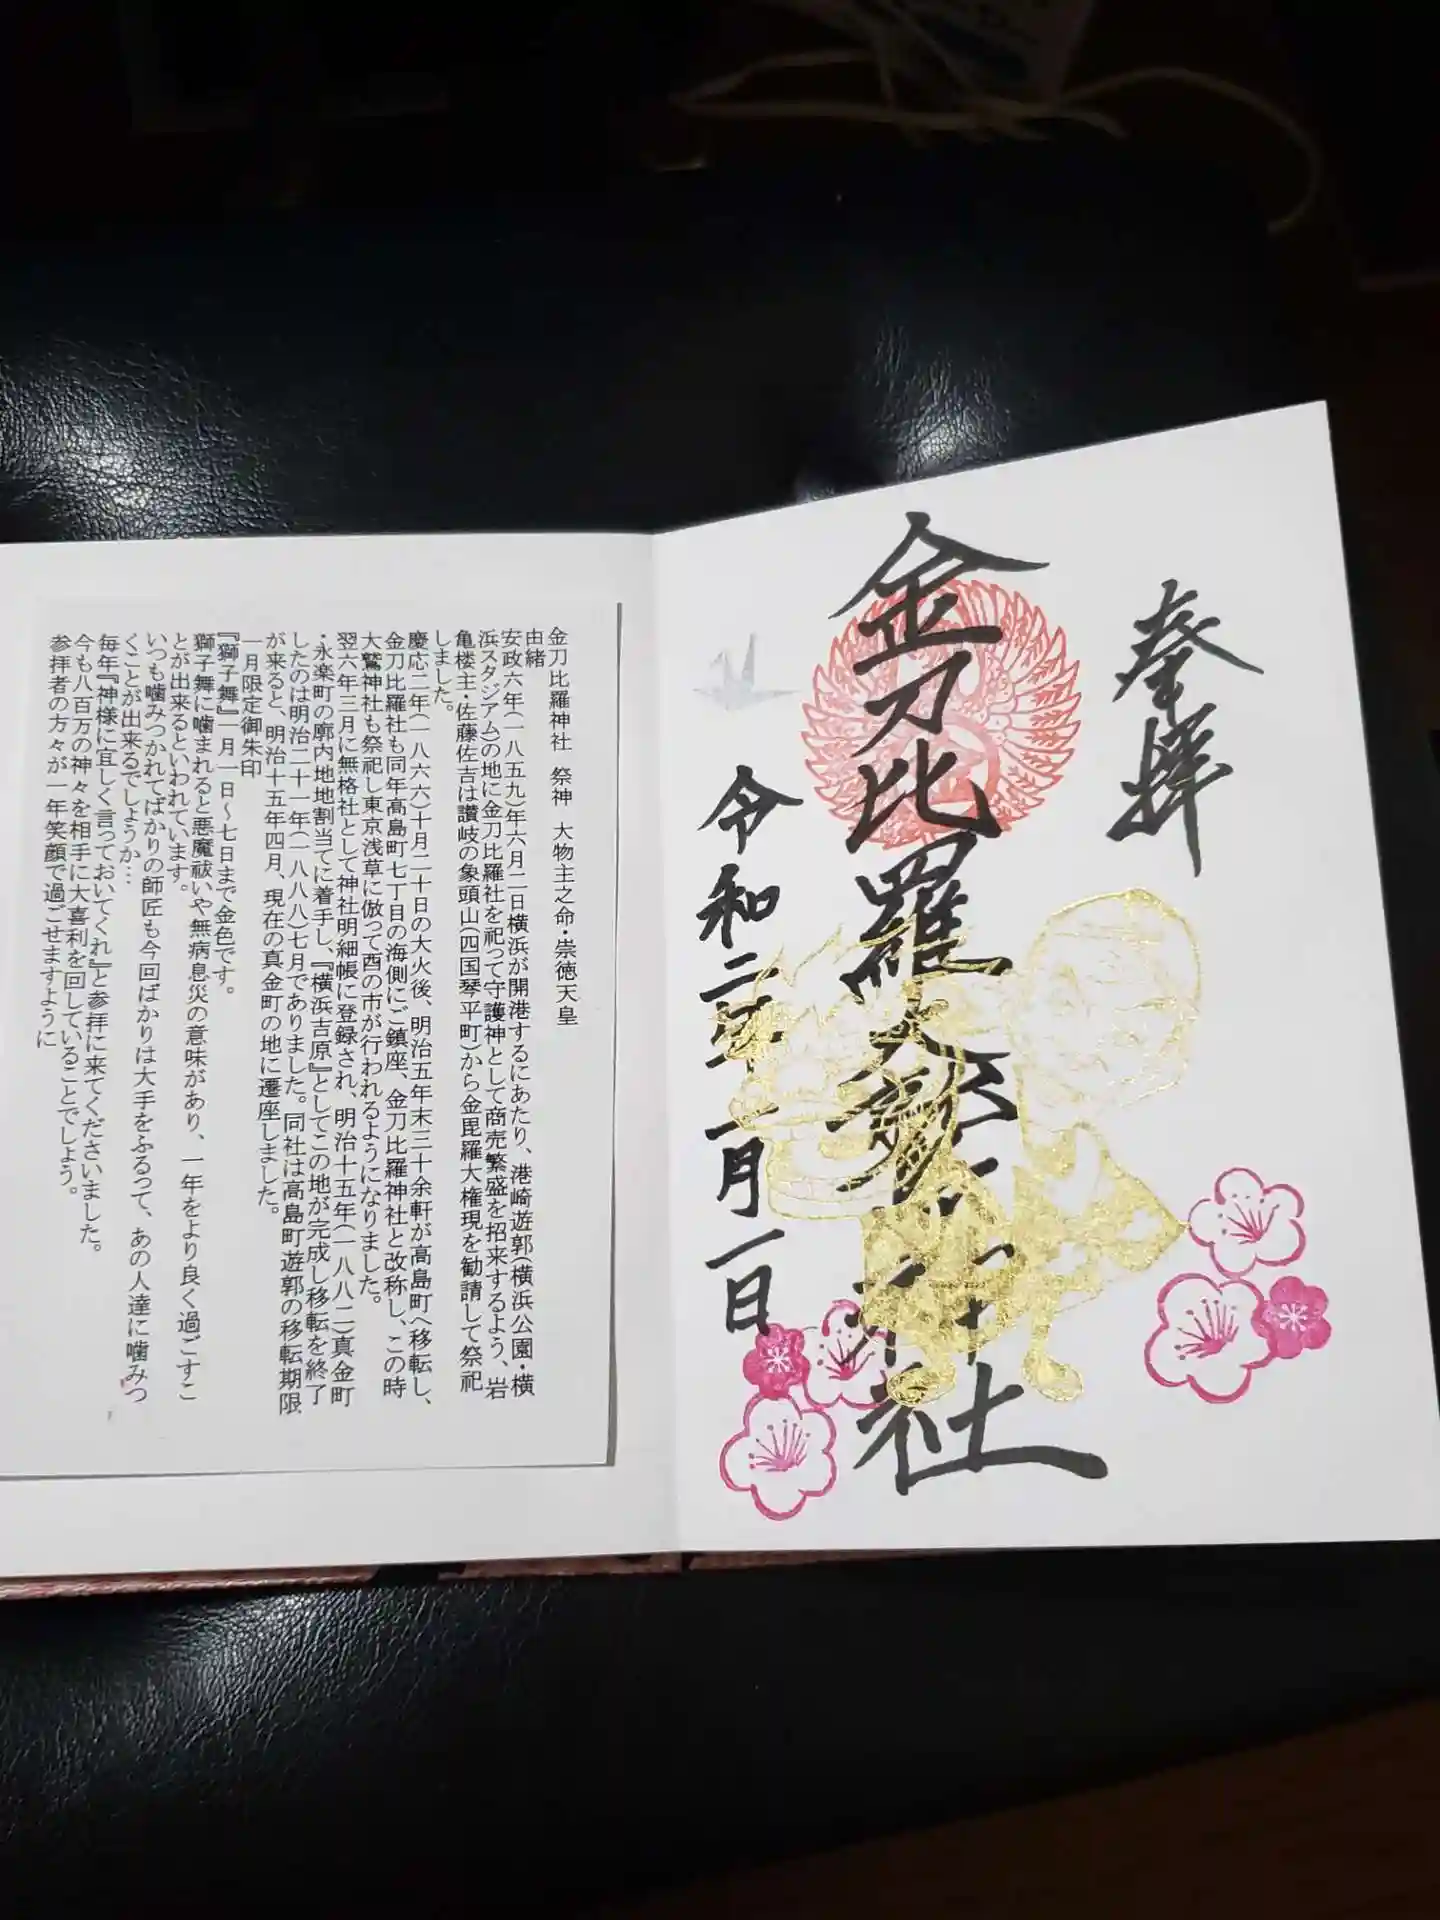 奉拝
金刀比羅大鷲神社
令和二年一月一日
金刀比羅神社 祭神 大物主之命・崇徳天皇
由緒
安政六年(一八五九)年六月二日横浜が開港するにあたり、港崎遊郭(横浜公園・横
浜スタジアム)の地に金刀比羅社を祀って守護神として商売繁盛を招来するよう、岩
亀楼主・佐藤佐吉は讃岐の象頭山(四国琴平町)から金毘羅大権現を勧請して祭祀
しました。
慶応二年(一八六六)十月二十日の大火後、明治五年末三十余軒が高島町へ移転し、
金刀比羅社も同年高島町七丁目の海側にご鎮座、金刀比羅神社と改称し、この時
大鷲神社も祭祀し東京浅草に倣って酉の市が行われるようになりました。
翌六年三月に無格社として神社明細帳に登録され、明治十五年(一八八二)真金町
・永楽町の廓内地地割当てに着手し、『横浜吉原』としてこの地が完成し移転を終了
したのは明治二十一年(一八八八)七月でありました。同社は高島町遊郭の移転期限
が来ると、明治十五年四月、現在の真金町の地に遷座しました。
一月限定御朱印
『獅子舞』一月一日～七日まで金色です。
獅子舞に噛まれると悪魔祓いや無病息災の意味があり、一年をより良く過ごすこ
とが出来るといわれています。
いつも噛みつかれてばかりの師匠も今回ばかりは大手をふるって、あの人達に噛みつ
くことが出来るでしょうか…
毎年『神様に宜しく言っておいてくれ』と参拝に来てくださいました。
今も八百万の神々を相手に大喜利を回していることでしょう。
参拝者の方々が一年笑顔で過ごせますように